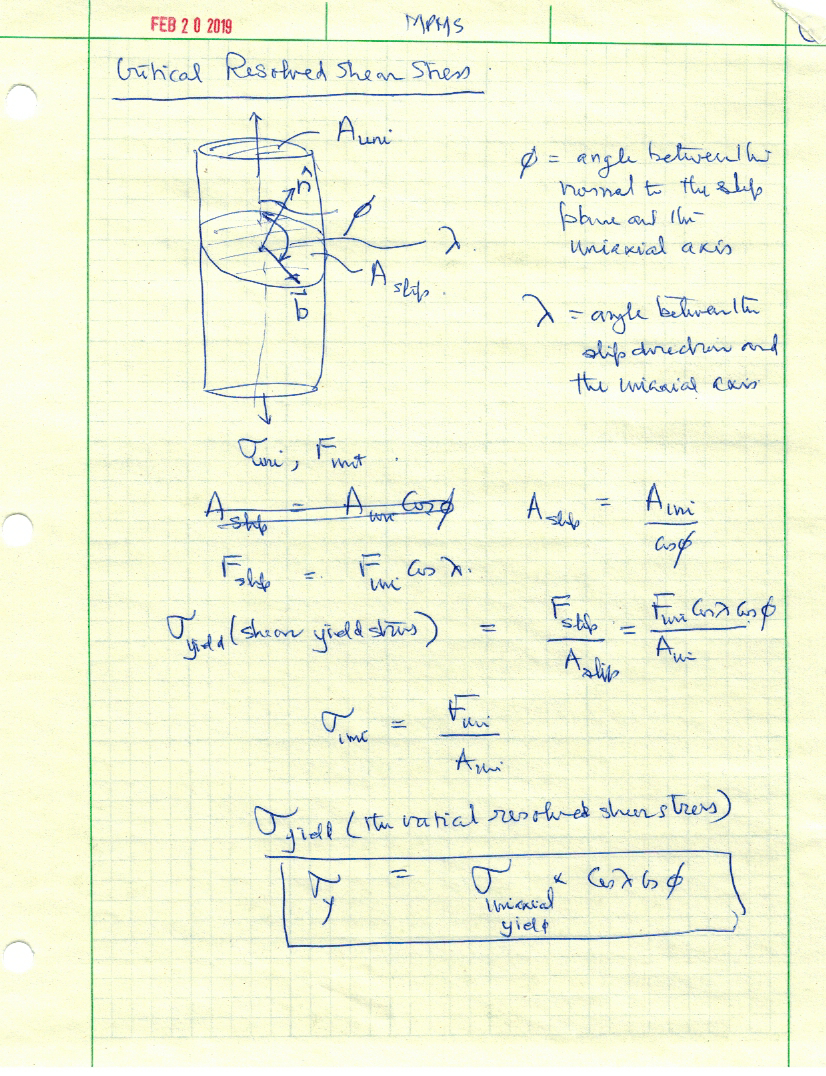 FEB 20 2019
MPMS
Critical Resolved Shear Stress
A uni
n̂
ϕ
λ
A slip
b⃗
ϕ = angle between the
normal to the slip
plane and the
uniaxial axis
λ = angle between the
slip direction and
the uniaxial axis
σ uni, F
A slip = A uni Cos ϕ
A slip = A uni / cos ϕ
F slip = F uni Cos λ.
σ yield (shear yield stress) = F slip / A slip = F uni Cos λ Cos ϕ / A uni
σ uni = F uni / A uni
σ yield (the critical resolved shear stress)
τ y = σ uniaxial yield × Cos λ Cos ϕ